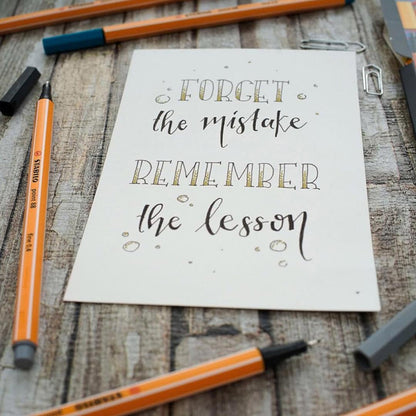 FORGET
the mistake
REMEMBER
the lesson
STABILO point 88 fine 0.4